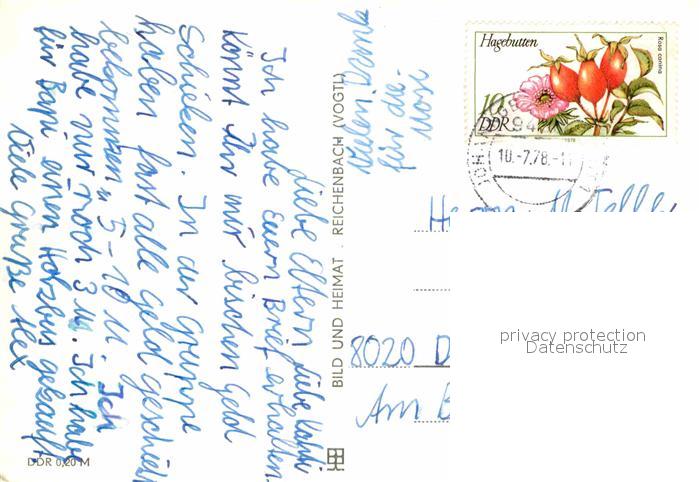 Liebe Eltern liebe Kapfi
Ich habe Euern Brief erhalten.
Könnt Ihr mir bischen Geld
schicken. In der Gruppe
haben fast alle Geld geschickt
bekommen 5-10 M. Ich
habe nur noch 3 M. Ich habe
für Bapi einen Holzbus gekauft
Viele Grüße Alex
Vielen Dank
für die
BILD UND HEIMAT . REICHENBACH (VOGTL)
DDR 0,20 M
Hagebutten
Rosa canina
10
DDR
1978
10.-7.78.-11
Herrn
8020 D
Am B
privacy protection
Datenschutz